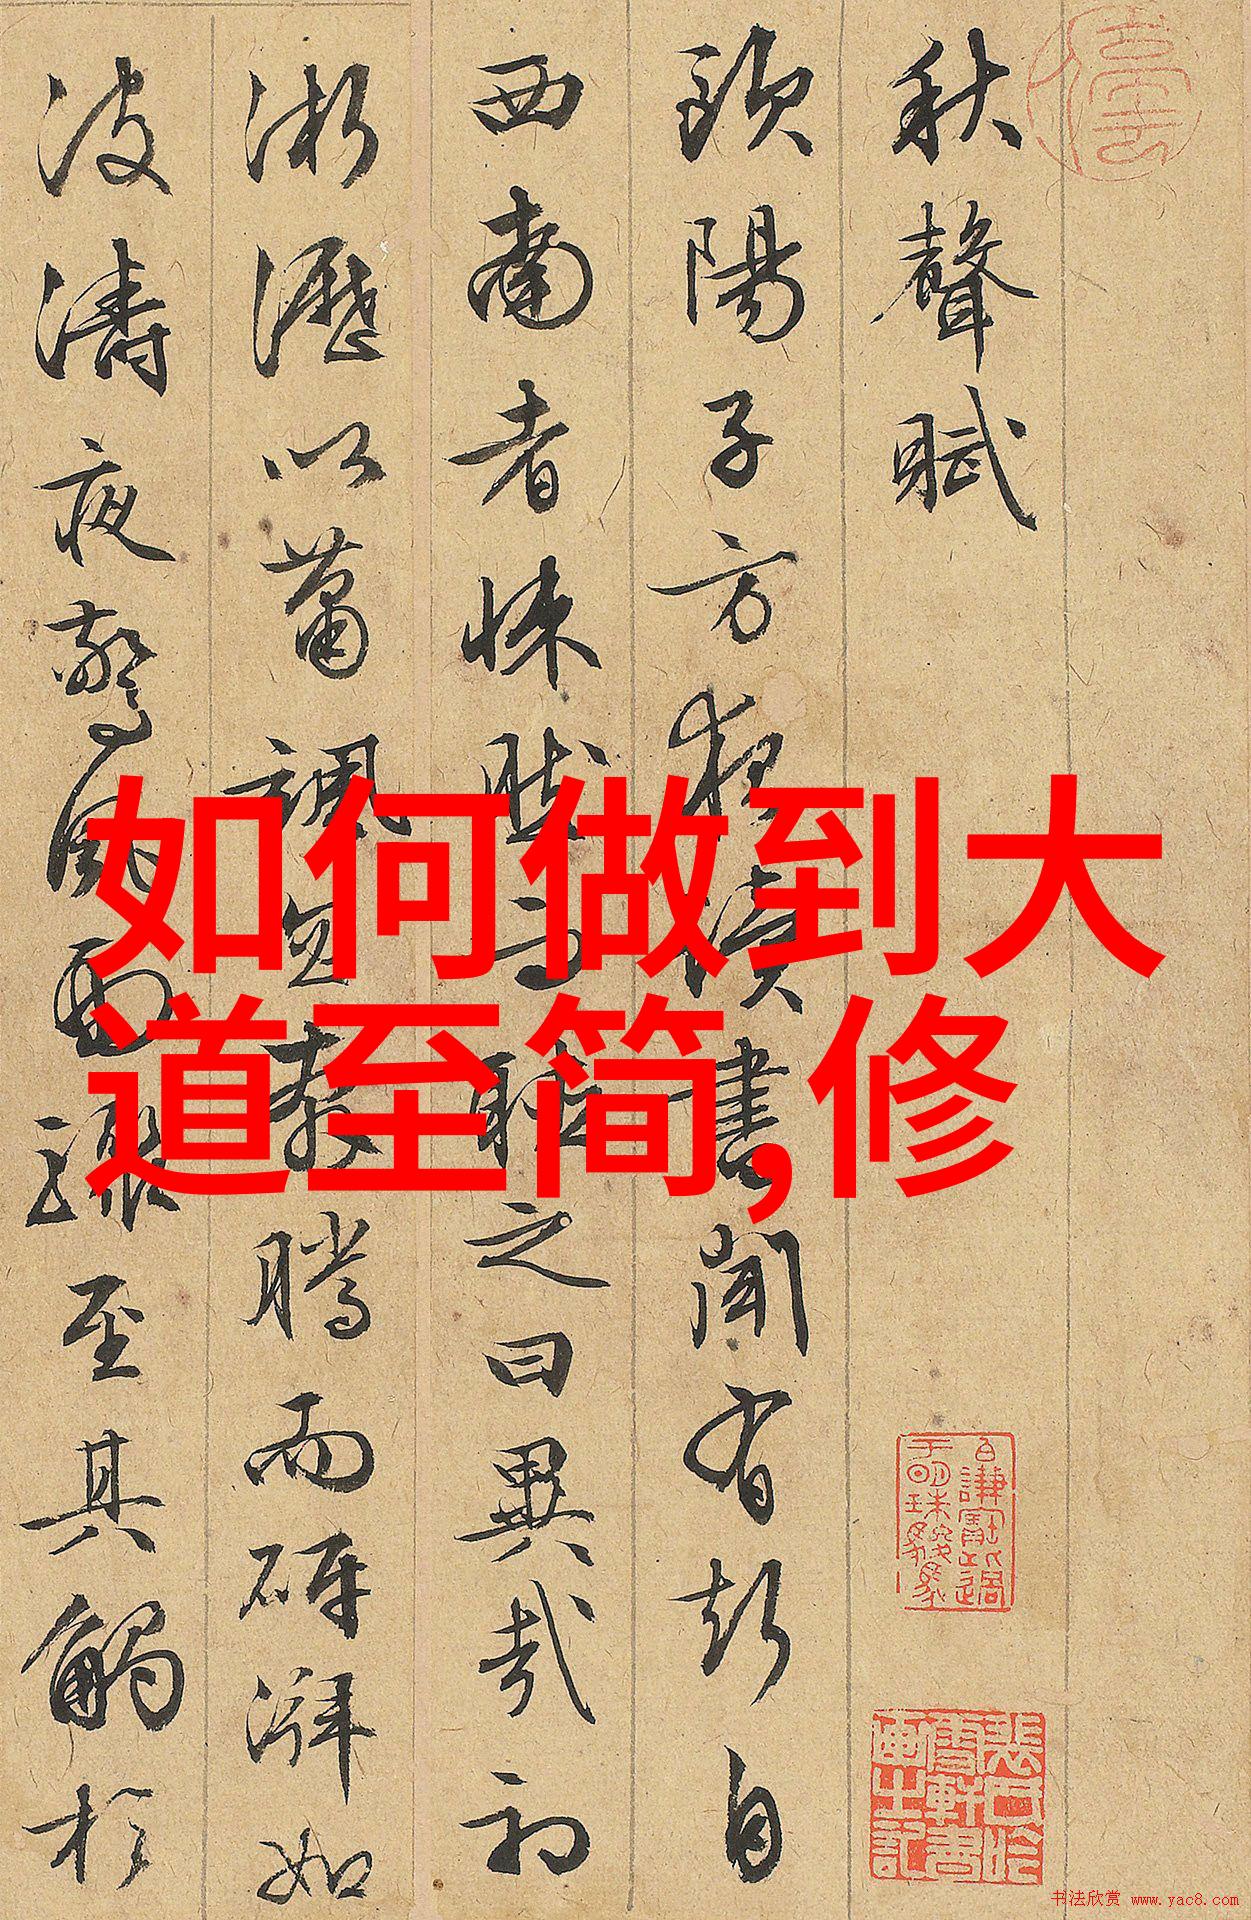 秋聲賦
歐陽子方夜讀書聞有聲自
西南者悚然而聽之曰異哉初
淅瀝以蕭颯忽奔騰而砰湃如
波濤夜驚風雨驟至其觸於
如何做到大
道至简,修
书法欣赏 www.yac8.com